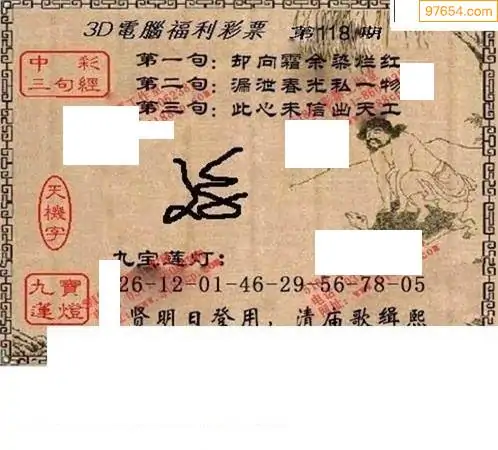 97654.com
3D電腦福利彩票 第118期
中彩三句經
第一句：却向霜余染烂红
第二句：漏泄春光私一物
第三句：此心未信出天工
天機字
九宝莲灯：
26-12-01-46-29-56-78-05
九寶蓮燈
贤明日登用，清庙歌缉熙